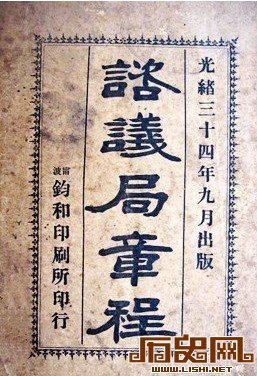 光緒三十四年九月出版
諮議局章程
甯波
鈞和印刷所印行
历史网
WWW.LISHI.NET